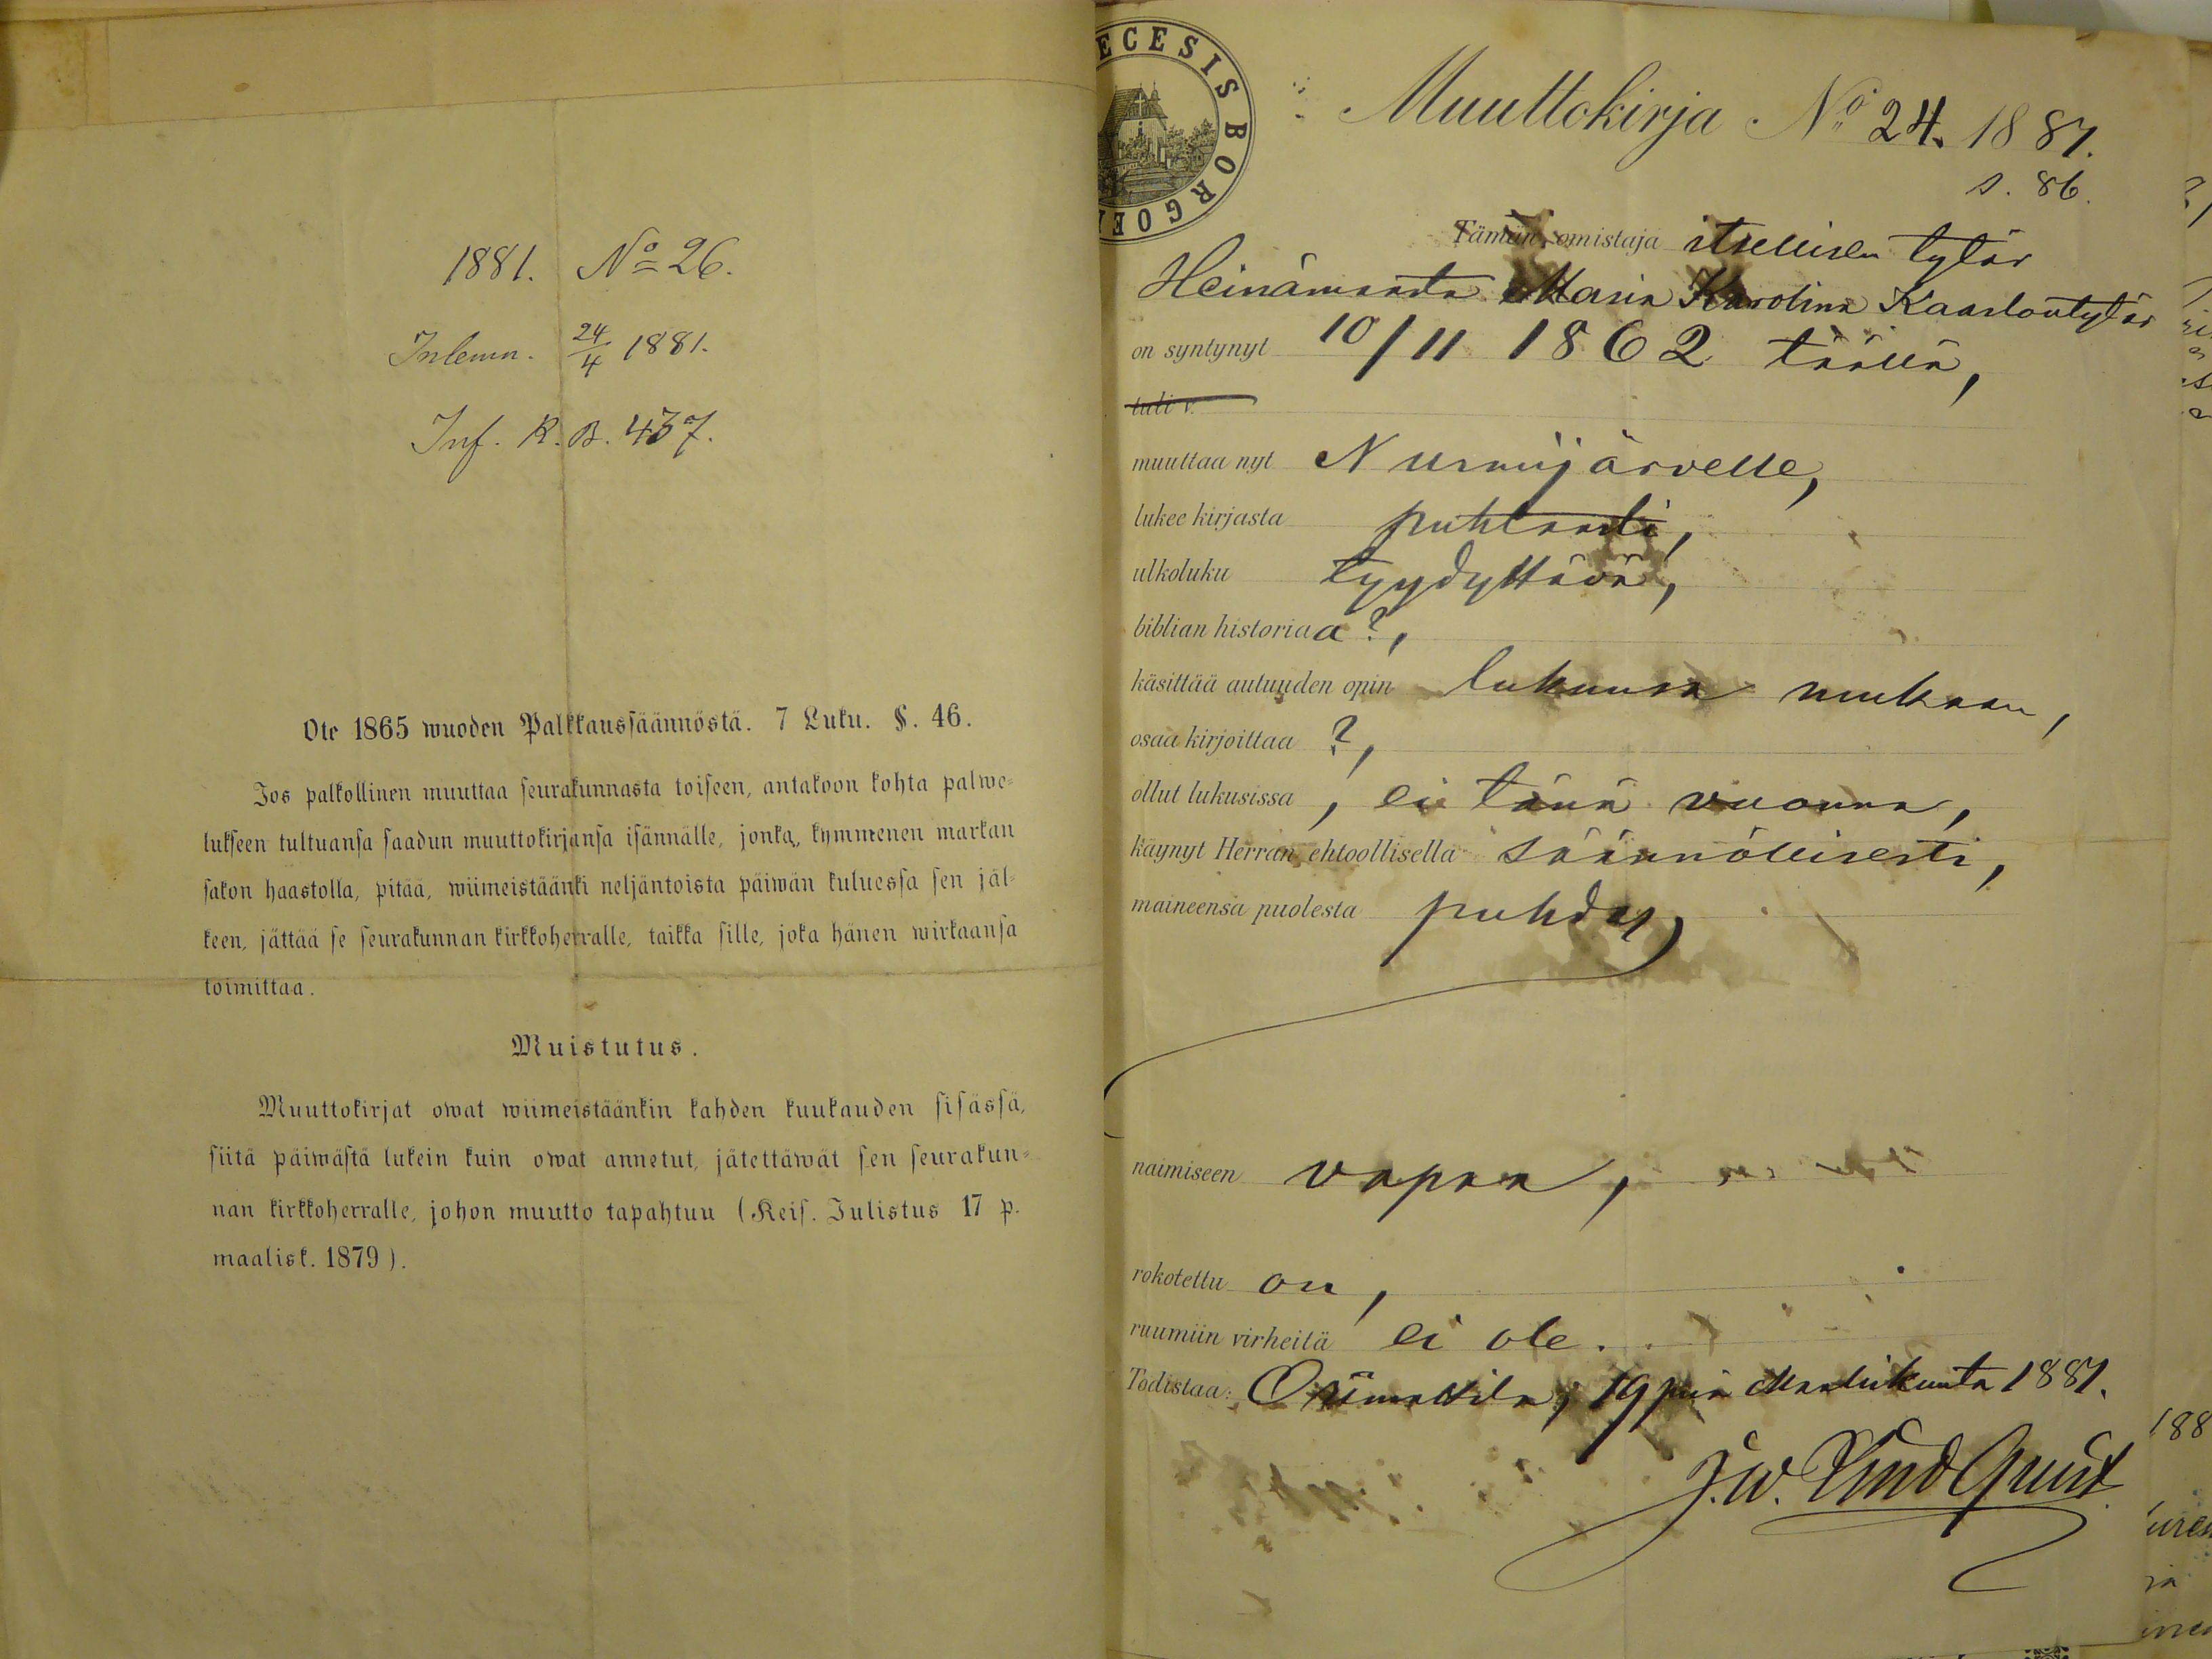 1881. No 26.
Inlemn. 24/4 1881.
Inf. K. B. 437.
Ote 1865 wuoden Palkkaussäännöstä. 7 Luku. §. 46.
Jos palkollinen muuttaa seurakunnasta toiseen, antakoon kohta palwe-
lukseen tultuansa saadun muuttokirjansa isännälle, jonka, kymmenen markan
sakon haastolla, pitää, wiimeistäänki neljäntoista päiwän kuluessa sen jäl-
keen, jättää se seurakunnan kirkkoherralle, taikka sille, joka hänen wirkaansa
toimittaa.
Muistutus.
Muuttokirjat owat wiimeistäänkin kahden kuukauden sisässä,
siitä päiwästä lukein kuin owat annetut, jätettäwät sen seurakun-
nan kirkkoherralle, johon muutto tapahtuu (Keis. Julistus 17 p.
maalisk. 1879).
ECESIS BORGOE
Muuttokirja No 24. 1881.
s. 86.
Tämän omistaja itsellisen tytär
Heinämaasta Maria Karolina Kaarlontytär
on syntynyt 10/11 1862 täällä,
tuli v.
muuttaa nyt Nurmijärvelle,
lukee kirjasta puhtaasti,
ulkoluku tyydyttävä,
biblian historiaa ?,
käsittää autuuden opin lukunsa mukaan,
osaa kirjoittaa ?,
ollut lukusissa , ei tänä vuonna,
käynyt Herran ehtoollisella säännöllisesti,
maineensa puolesta puhdas,
naimiseen vapaa,
rokotettu on,
ruumiin virheitä ei ole.
Todistaa: Orimattila, 19 p:nä Maaliskuuta 1881.
J.W. Lindquist